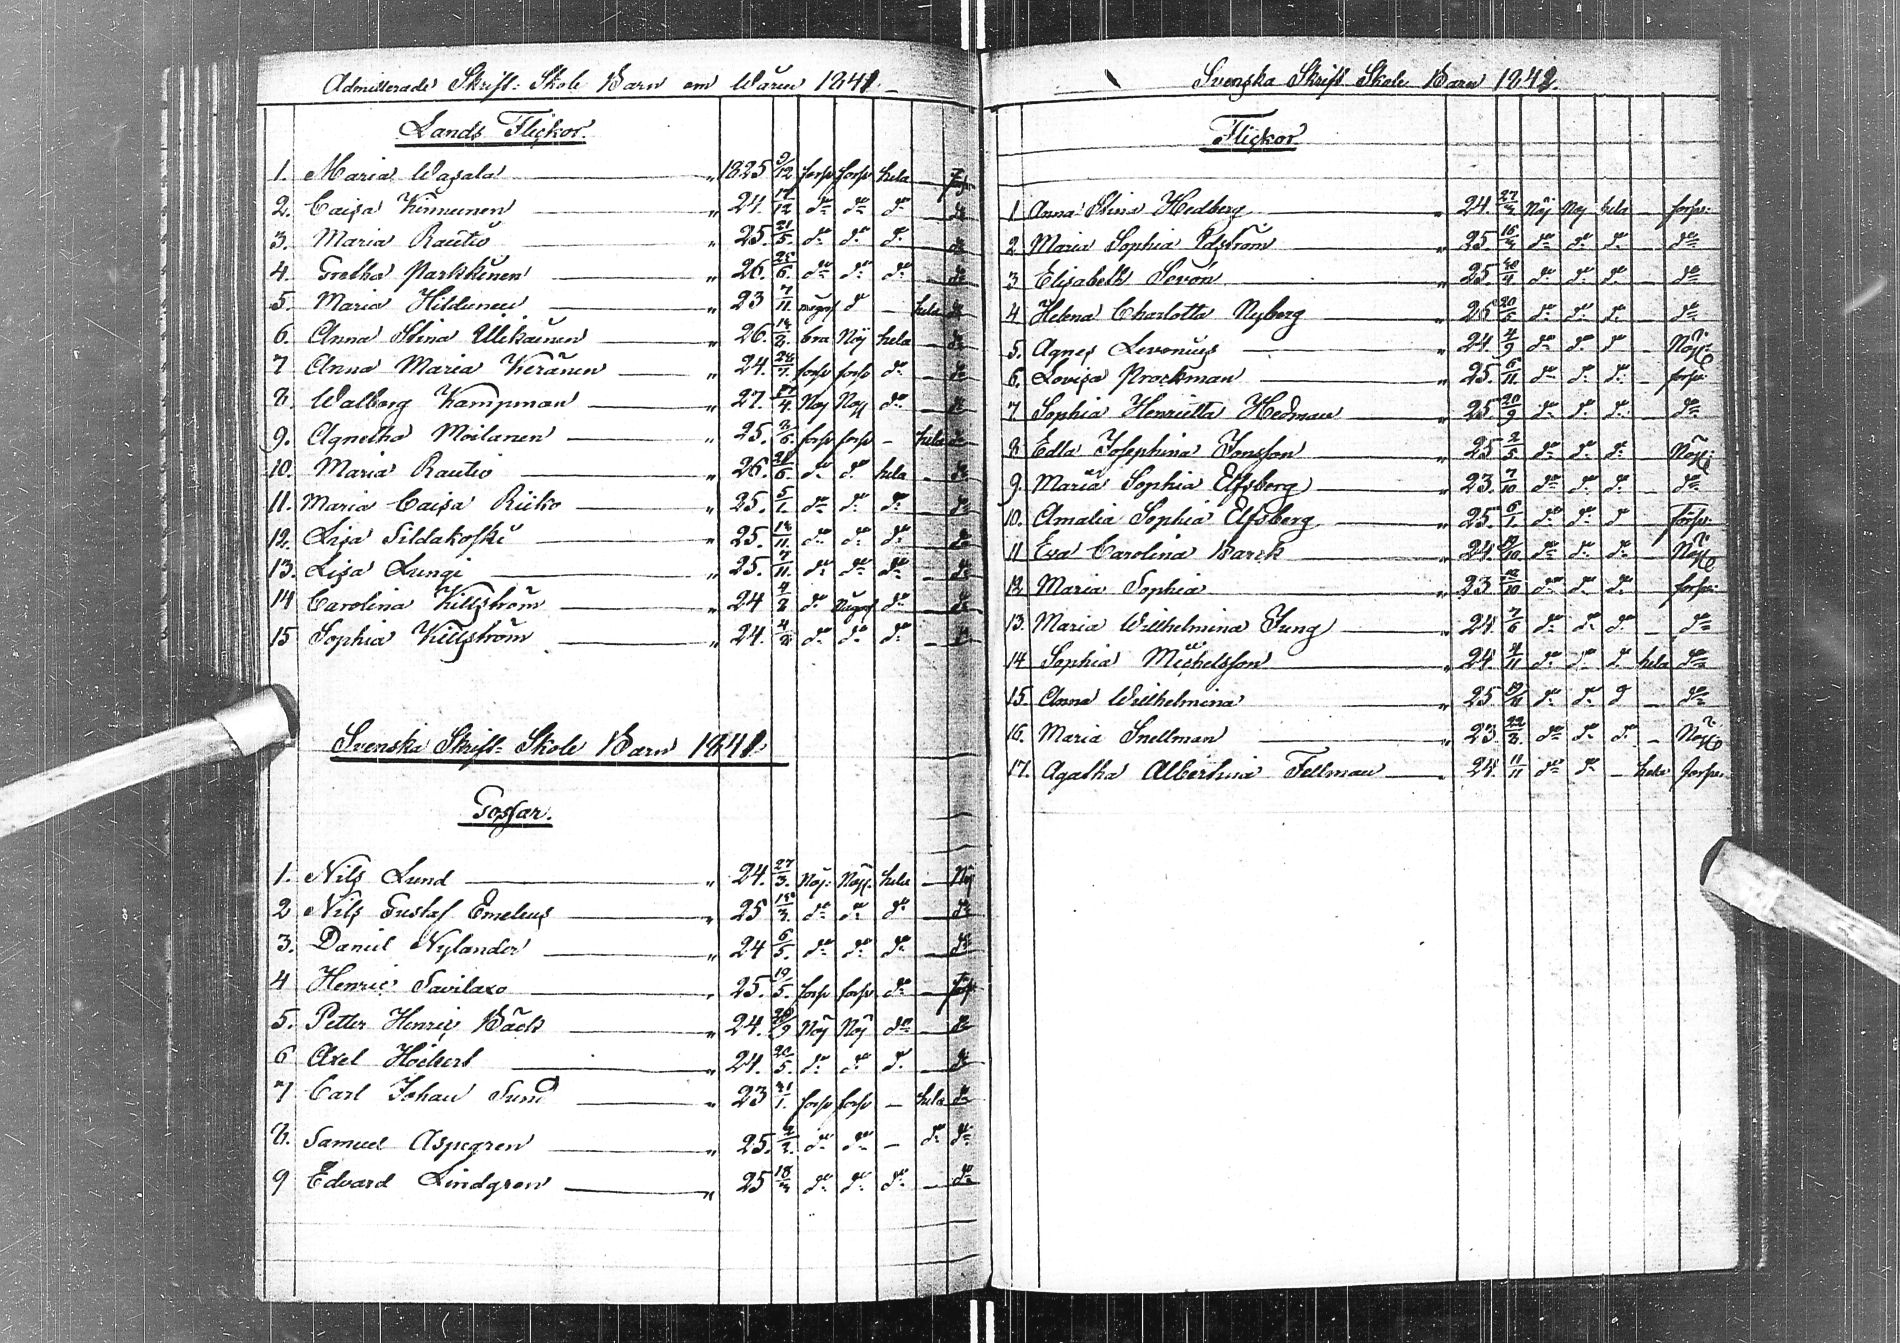 Admitterade Skrift-Skole Barn om Våren 1841.
Lands Flickor.
1. Maria Wagala " 1825 9/12 forsv forsv hela — forsv
2. Caisa Kinnunen " 24. 17/12 do do do do
3. Maria Rautio " 25. 21/5. do do do do
4. Gretha Parkkinen " 26. 25/6. do do do do
5. Maria Hildunen " 23 7/11. någ do — hela do
6. Anna Stina Ulikainen " 26. 14/3. bra Nöj hela — do
7 Anna Maria Keränen " 24. 24/7. forsv forsv do — do
8. Walborg Kampman " 27. 17/4. Nöj Nöj do — do
9. Agnetha Moilanen " 25. 3/6. forsv forsv — hela do
10. Maria Rautio " 26. 21/6. do do hela — do
11. Maria Caisa Riiko " 25. 5/1. do do do — do
12. Lisa Sildakoski " 25. 14/11. do do do do
13. Lisa Lungi " 25. 7/11. do do do — do
14 Carolina Killström " 24 4/2 do Någ do — do
15 Sophia Killström " 24. 4/2 do do do — do
Svenska Skrift-Skole Barn 1841.
Gossar.
1. Nils Lund " 24. 27/3. Nöj. Nöj. hela — Nöj
2 Nils Gustaf Emeleus " 25 15/3. do do do — do
3. Daniel Nylander " 24 6/5. do do do — do
4 Henric Savilaxo " 25. 19/5. forsv forsv do — forsv
5. Petter Henric Bäck " 24. 20/9 Nöj Nöj do — do
6 Axel Höckert " 24. 20/5. do do do — do
7 Carl Johan Sund " 23 21/1. forsv forsv — hela do
8. Samuel Aspegren " 25. 2/2. do do — do do
9 Edvard Lindgren " 25 18/3 do do do — do
Svenska Skrift Skole Barn 1841.
Flickor
1 Anna Stina Hedberg " 24. 27/3 Nöj Nöj hela — forsv.
2. Maria Sophia Udström " 25 16/3 do do do — do
3 Elisabeth Sovon " 25. 30/4 do do do do
4 Helena Charlotta Nyberg " 25 20/5 do do do — do
5. Agnes Levonius " 24. 4/9 do do do — Nöj
6. Lovisa Prockman " 25. 6/11 do do do — forsv
7 Sophia Henrietta Hedman " 25 20/9 do do do — do
8 Edla Josephina Jonsson " 25 2/5 do do do — Nöj
9. Maria Sophia Elfsberg " 23. 7/10 do do do — do
10. Amalia Sophia Elfsberg " 25 6/1. do do do — forsv.
11 Eva Carolina Barck " 24 19/10 do do do — Nöj
12 Maria Sophia " 23 22/10 do do do forsv.
13. Maria Willhelmina Jung " 24. 7/6 do do do — do
14 Sophia Michelsson " 24. 4/11 do do do hela do
15. Anna Willhelmina " 25 do do do — do
16. Maria Snellman " 23. 22/3. do do do — Nöj
17. Agatha Albertina Fellman " 24. 11/11 do do — hela forsv.